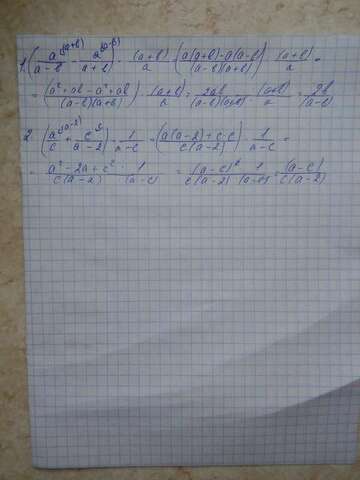 1. (a^(a+b)/(a-b) - a^(a-b)/(a+b)) · (a+b)/a = (a(a+b)-a(a-b))/((a-b)(a+b)) · (a+b)/a =
= (a²+ab-a²+ab)/((a-b)(a+b)) · (a+b)/a = 2ab/((a-b)(a+b)) · (a+b)/a = 2b/(a-b)
2. (a^(a-2)/c + c^c/(a-2)) · 1/(a-c) = (a(a-2)+c·c)/(c(a-2)) · 1/(a-c) =
= (a²-2a+c²)/(c(a-2)) · 1/(a-c) = (a-c)²/(c(a-2)) · 1/(a-c) = (a-c)/(c(a-2))